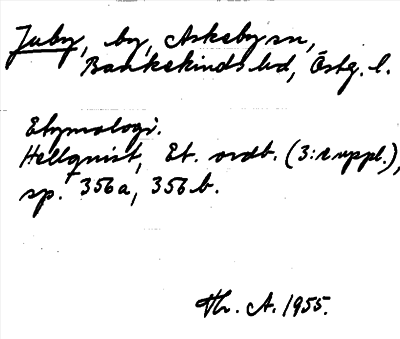 Juby, by, Askeby sn,
Bankekinds hd, Östg. l.
Etymologi.
Hellquist, Et. ordb. (3:e uppl.),
sp. 356a, 356b.
Th. A. 1955.